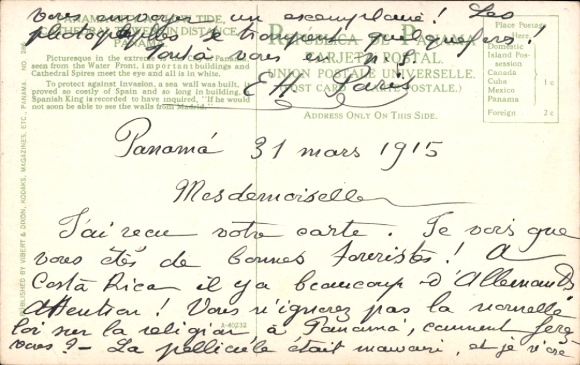 vous envoyer un exemplaire! Les
photographes se trompent quelquefois!
Tout à vous en
E H Paris
PANAMA TIDE,
CATHEDRAL TOWERS IN DISTANCE,
PANAMA.
Picturesque in the extreme is the City of Panama,
seen from the Water Front, important buildings and
Cathedral Spires meet the eye and all is in white.
To protect against invasion, a sea wall was built,
proved so costly of Spain and so long in building,
Spanish King is recorded to have inquired, "If he would
not soon be able to see the walls from Madrid."
REPUBLICA DE PANAMA
TARJETA POSTAL.
UNION POSTALE UNIVERSELLE.
(POST CARD CARTE POSTALE.)
ADDRESS ONLY ON THIS SIDE.
Place Postage
Here.
Domestic
Island Pos-
session
Canada
Cuba
Mexico
Panama
1 c
Foreign 2 c
PUBLISHED BY VIBERT & DIXON, KODAKS, MAGAZINES, ETC., PANAMA. NO.
Panamá 31 mars 1915
Mesdemoiselles
J'ai reçu votre carte. Je vois que
vous êtes de bonnes touristes! A
Costa Rica il y a beaucoup d'Allemands
Attention! Vous n'ignorez pas la nouvelle
loi sur la religion à Panamá, comment ferez
vous? - La pellicule était mauvaise, et je n'ai
A-40232